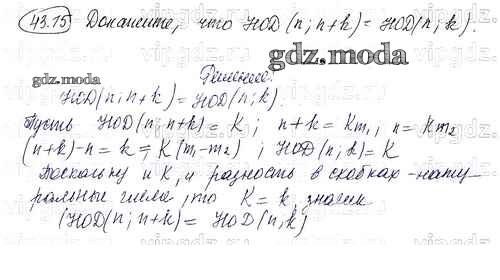 43.15 Докажите, что НОД (n; n+k) = НОД(n; k).
gdz.moda
gdz.moda
Решение.
НОД(n; n+k) = НОД(n; k).
Пусть НОД(n; n+k) = K; n+k = Km₁, n = Km₂
(n+k)-n = k = K(m₁-m₂); НОД(n; k)=K
Поскольку и K, и разность в скобках - нату
ральные числа, то K = k, значит
НОД(n; n+k) = НОД(n; k)
gdz.moda